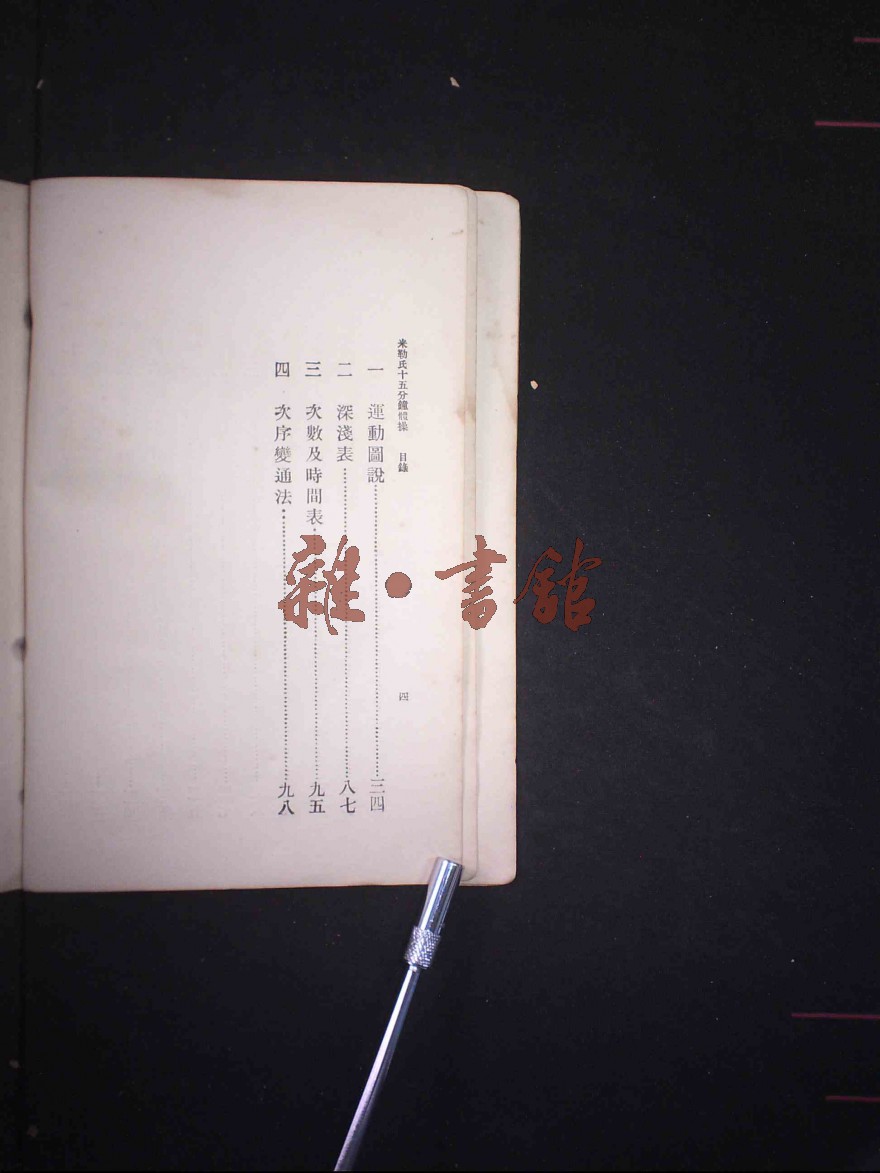 米勒氏十五分鐘體操 目錄 四
一 運動圖說……三四
二 深淺表……八七
三 次數及時間表……九五
四 次序變通法……九八
雜·書館